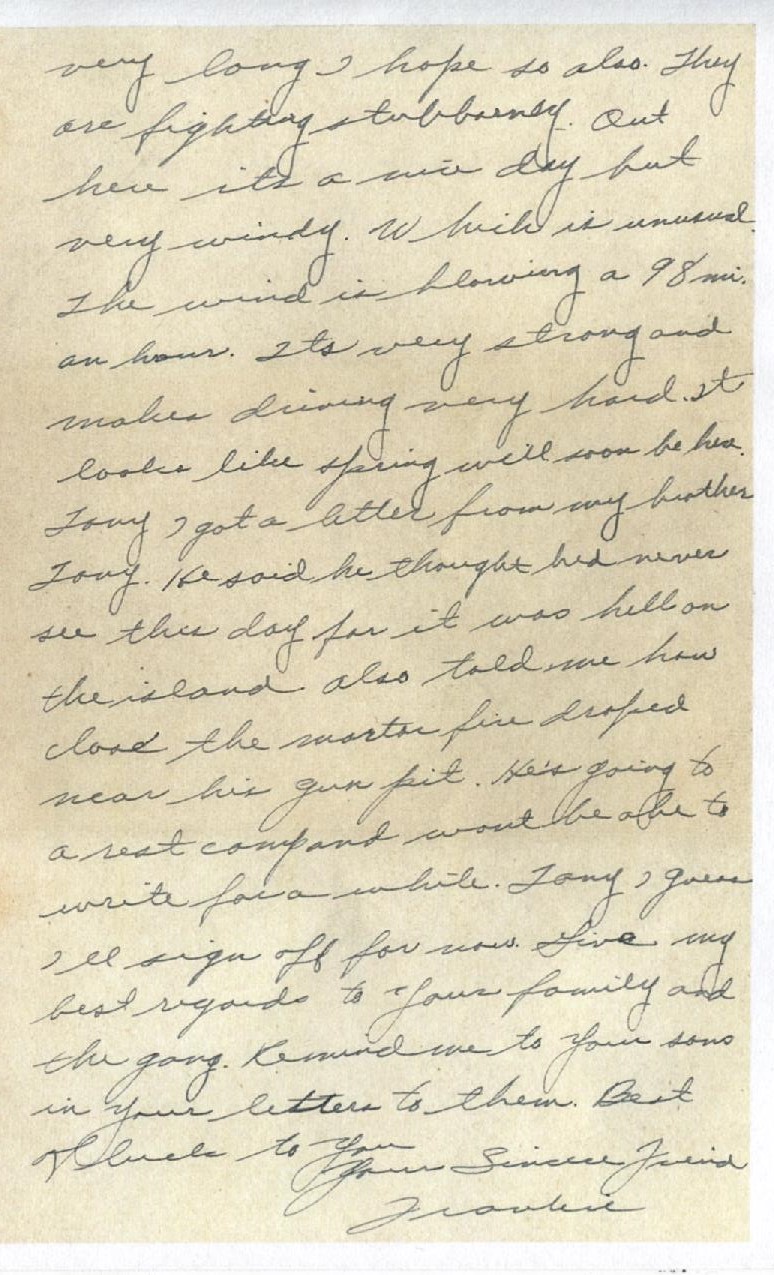 very long I hope so also. They
are fighting stubbornly. Out
here its a nice day but
very windy. Which is unusual.
The wind is blowing a 98 mi.
an hour. Its very strong and
makes driving very hard. It
looks like spring will soon be here.
Tony I got a letter from my brother
Tony. He said he thought he'd never
see this day for it was hell on
the island. also told me how
close the mortar fire droped
near his gun pit. He's going to
a rest camp and wont be able to
write for a while. Tony I guess
I'll sign off for now. Give my
best regards to your family and
the gang. Remind me to your sons
in your letters to them. Best
of luck to you
Your Sincere Freind
Frankie